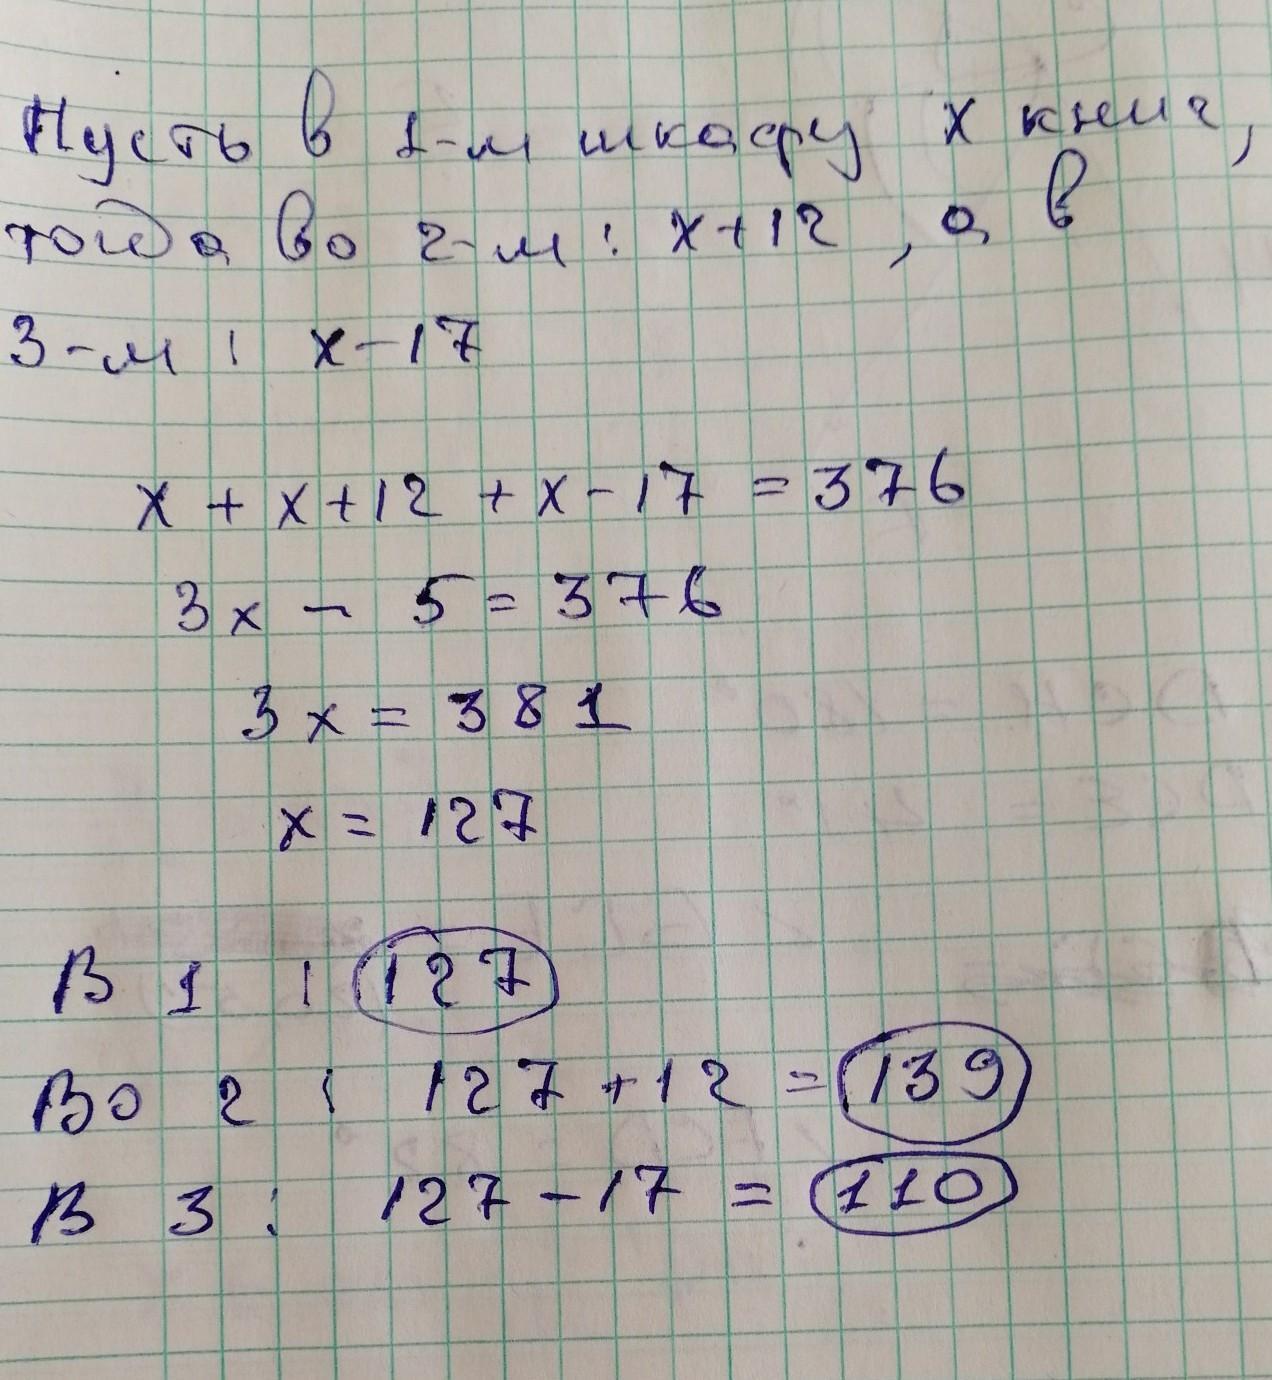 Пусть в 1-м шкафу x книг,
тогда во 2-м: x+12, а в
3-м: x-17
x + x+12 + x-17 = 376
3x - 5 = 376
3x = 381
x = 127
В 1 : 127
Во 2 : 127+12 = 139
В 3 : 127-17 = 110